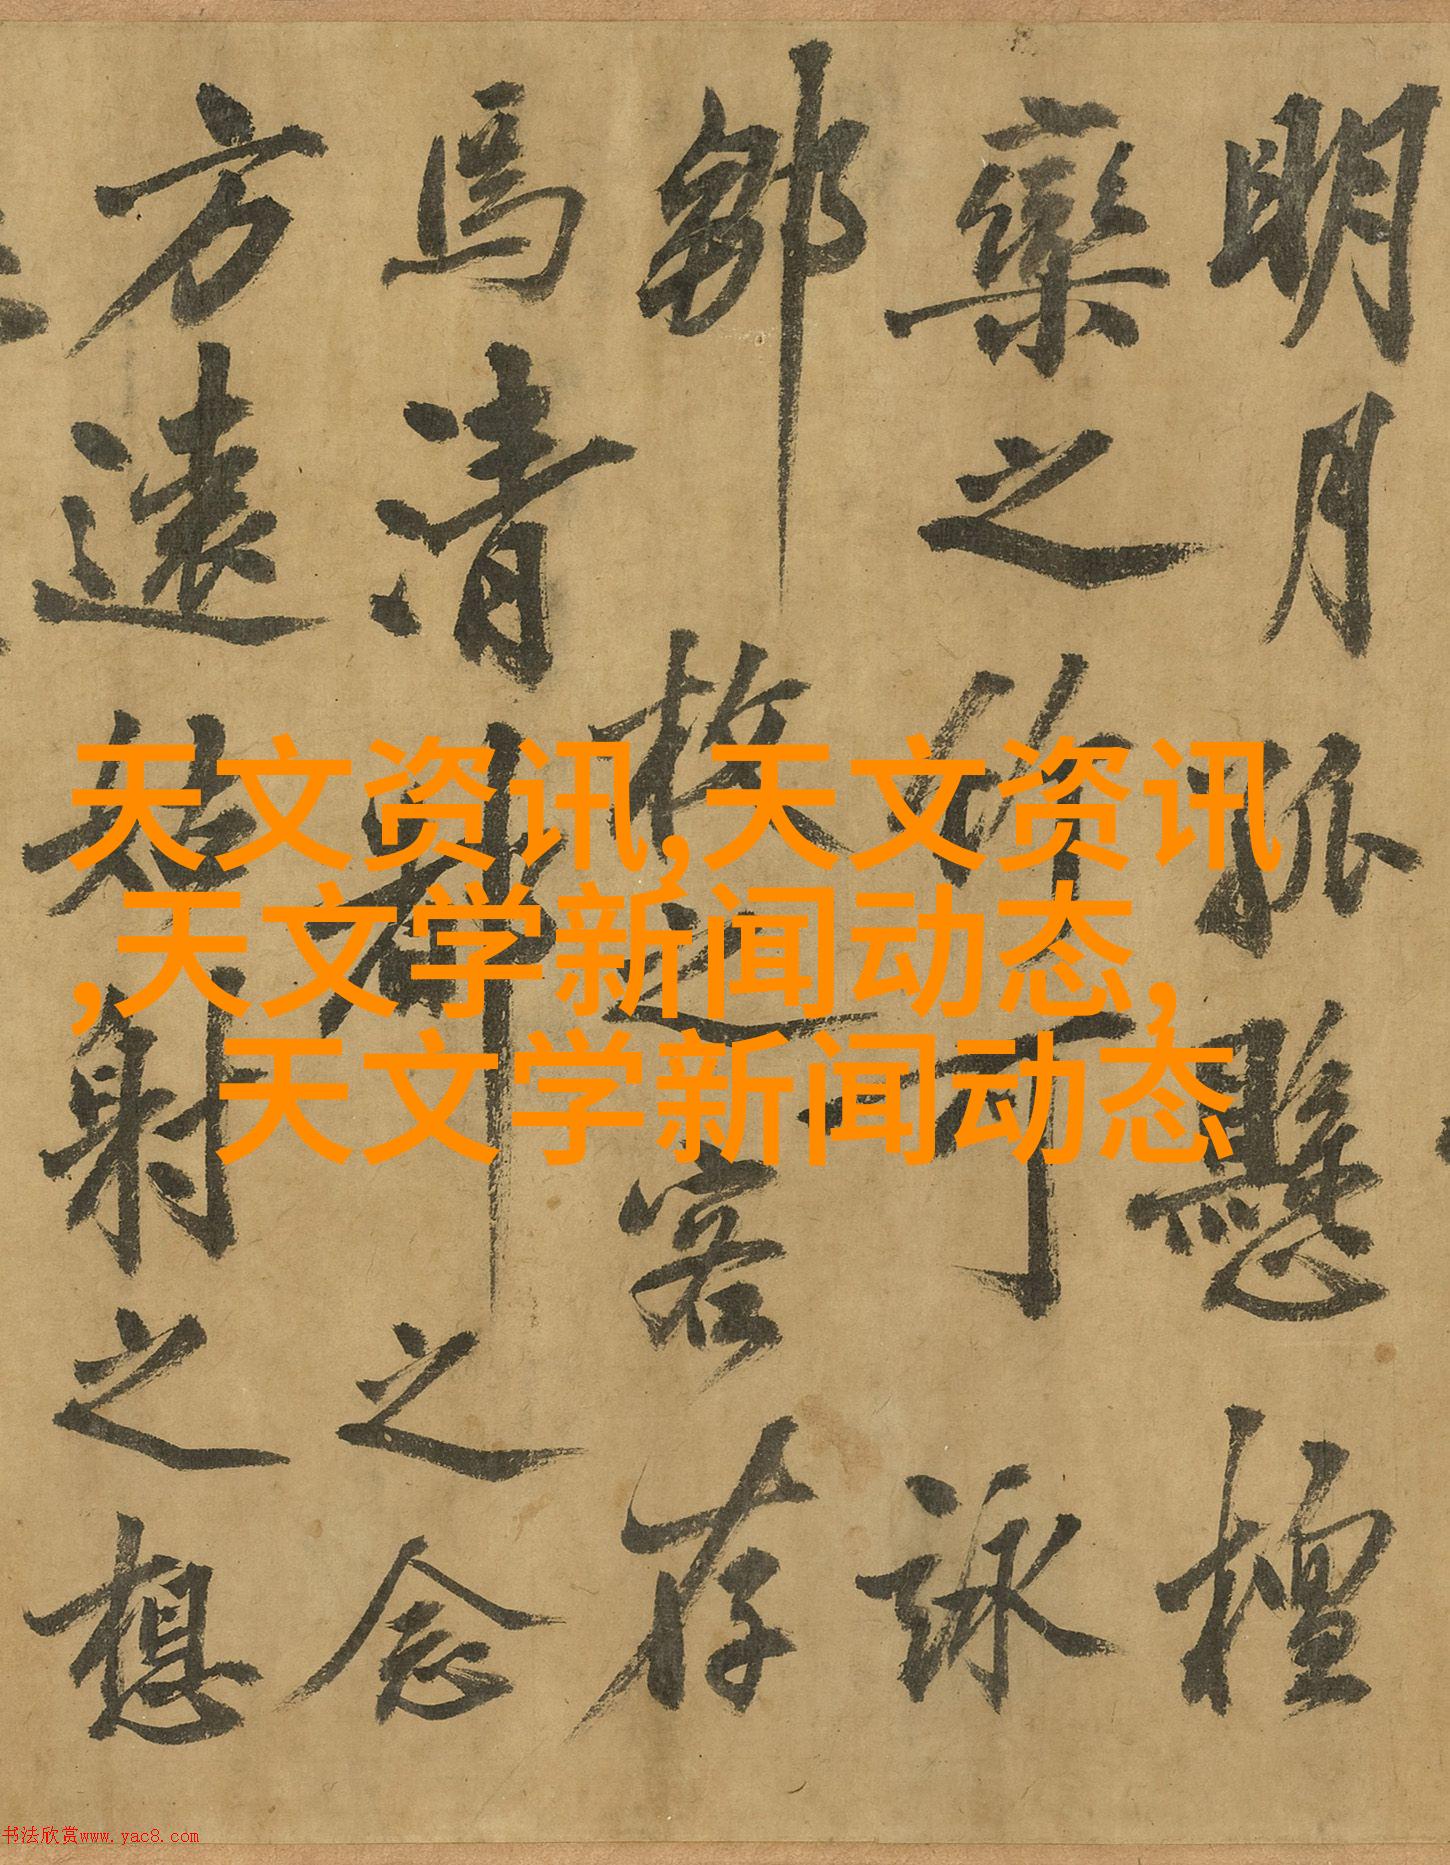 明月孤懸檀
欒之作可詠
鄒枚之客存
馬清
之念
方遠
射之想
天文资讯,天文资讯
,天文学新闻动态,
天文学新闻动态
书法欣赏www.yac8.com